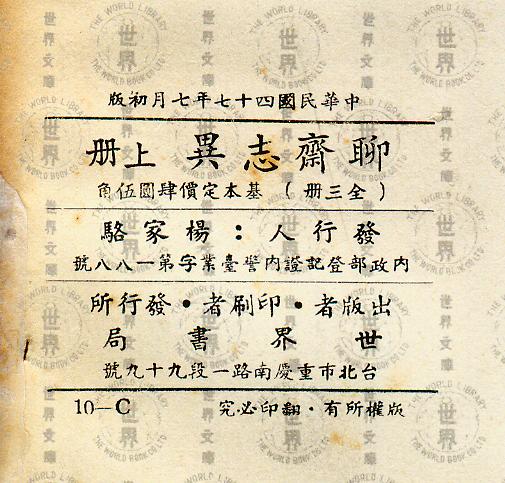 中華民國四十七年七月初版
聊齋志異 上册
(全三册) 基本定價肆圓伍角
發行人：楊家駱
內政部登記證內警臺業字第一八八號
出版者・印刷者・發行所
世界書局
台北市重慶南路一段九十九號
版權所有・翻印必究
10—C
世界文庫
THE WORLD LIBRARY
THE WORLD BOOK CO LTD